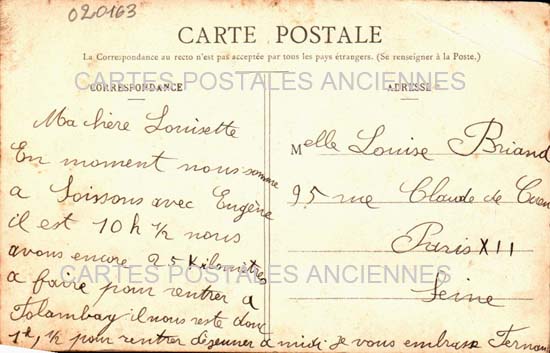 020163
CARTE POSTALE
La Correspondance au recto n'est pas acceptée par tous les pays étrangers. (Se renseigner à la Poste.)
CARTES POSTALES ANCIENNES
CORRESPONDANCE
ADRESSE
Ma chère Louisette
En moment nous sommes
a Soissons avec Eugène
il est 10 h ½ nous
avons encore 25 Kilomètres
a faire pour rentrer a
il nous reste donc
1h ½ pour rentrer déjeuner a midi. je vous embrasse Fernand
Melle Louise Briand
95 rue Claude de Caen
Paris XII
Seine
CARTES POSTALES ANCIENNES